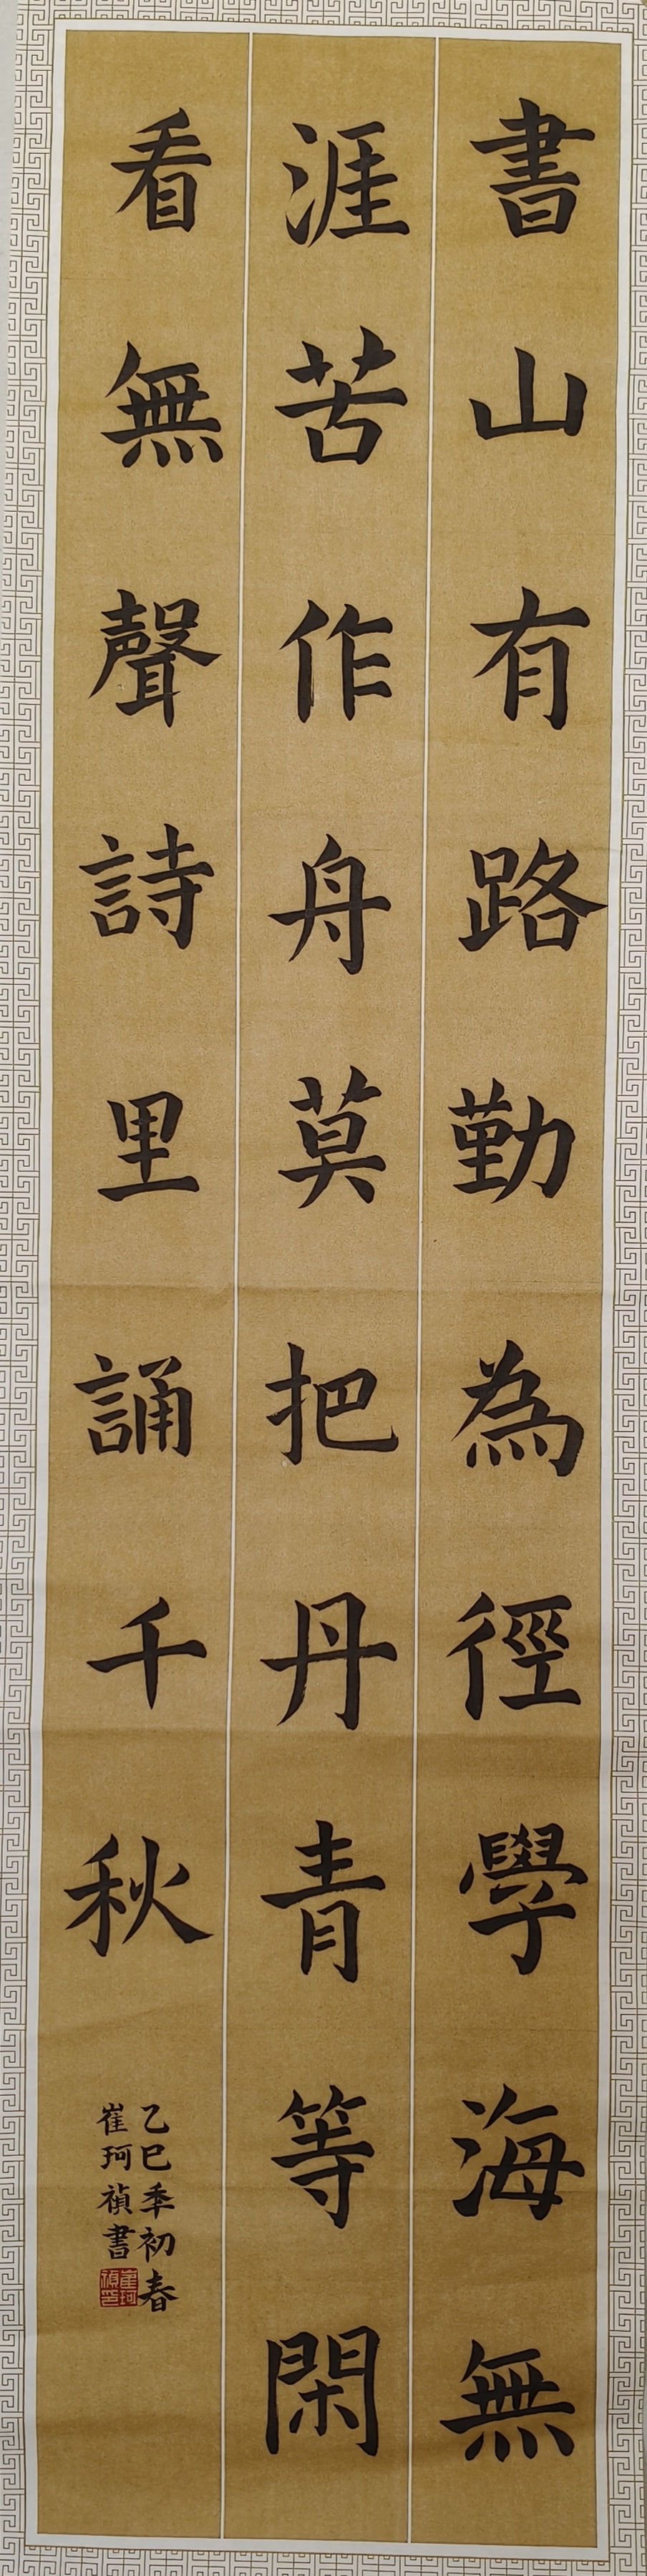 書山有路勤為徑學海無
涯苦作舟莫把丹青等閑
看無聲詩里誦千秋
乙巳年初春
崔珂禎書
崔珂禎印